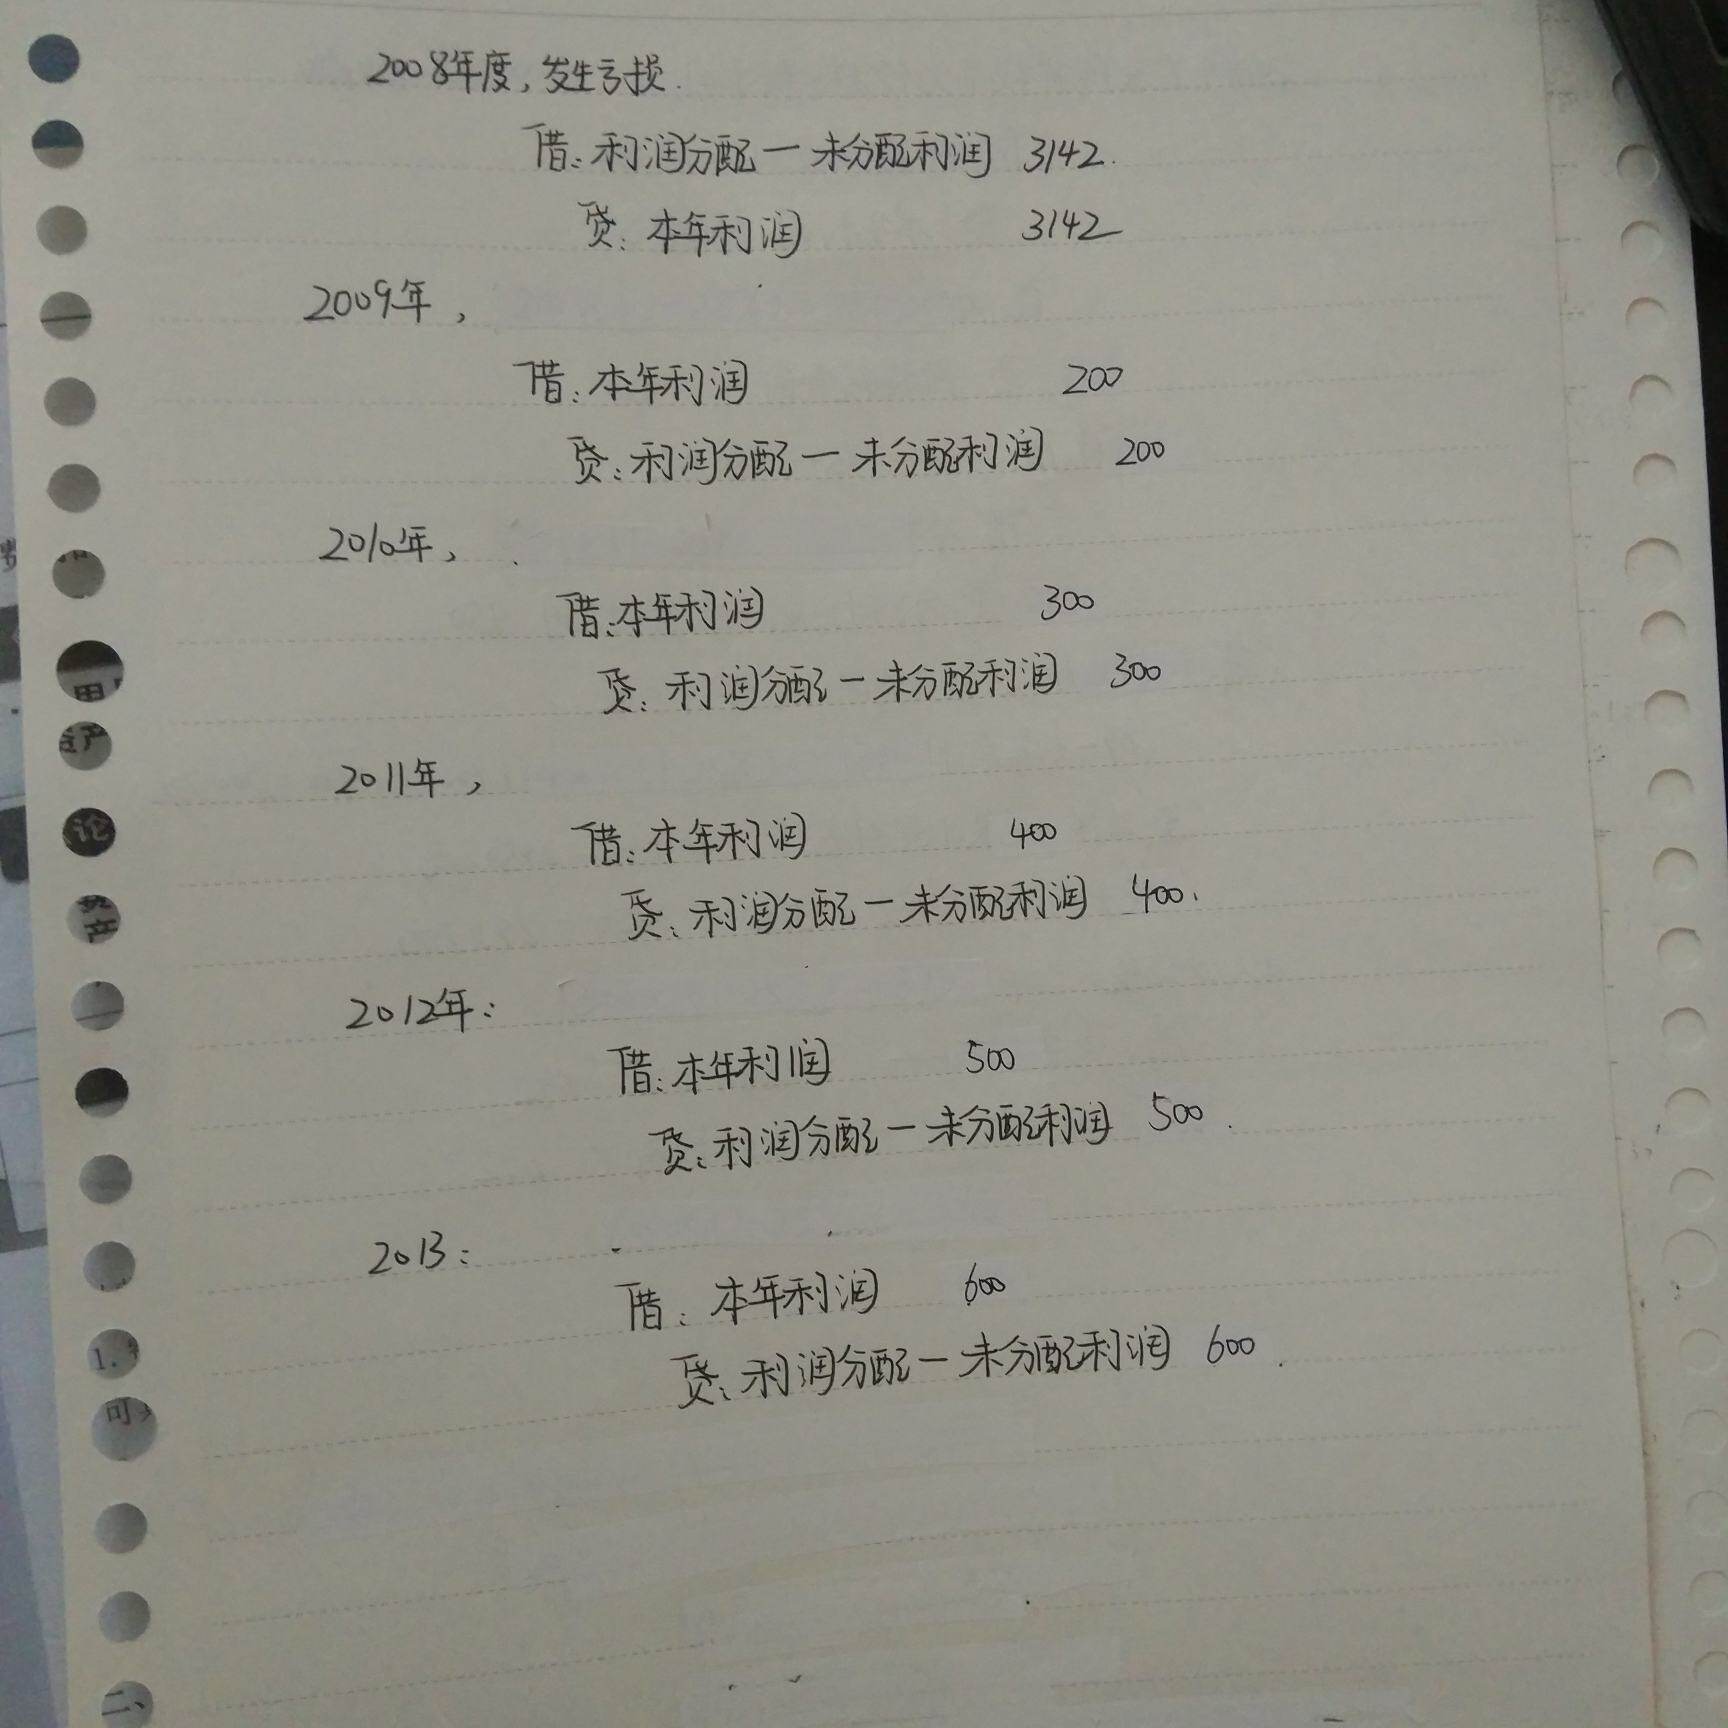 2008年度,发生亏损.
借:利润分配一未分配利润 3142.
贷:本年利润 3142
2009年,
借:本年利润 200
贷:利润分配一未分配利润 200
2010年,
借:本年利润 300
贷:利润分配一未分配利润 300
2011年,
借:本年利润 400
贷:利润分配一未分配利润 400.
2012年:
借:本年利润 500
贷:利润分配一未分配利润 500.
2013:
借:本年利润 600
贷:利润分配一未分配利润 600.
论
产
1.
可
二、